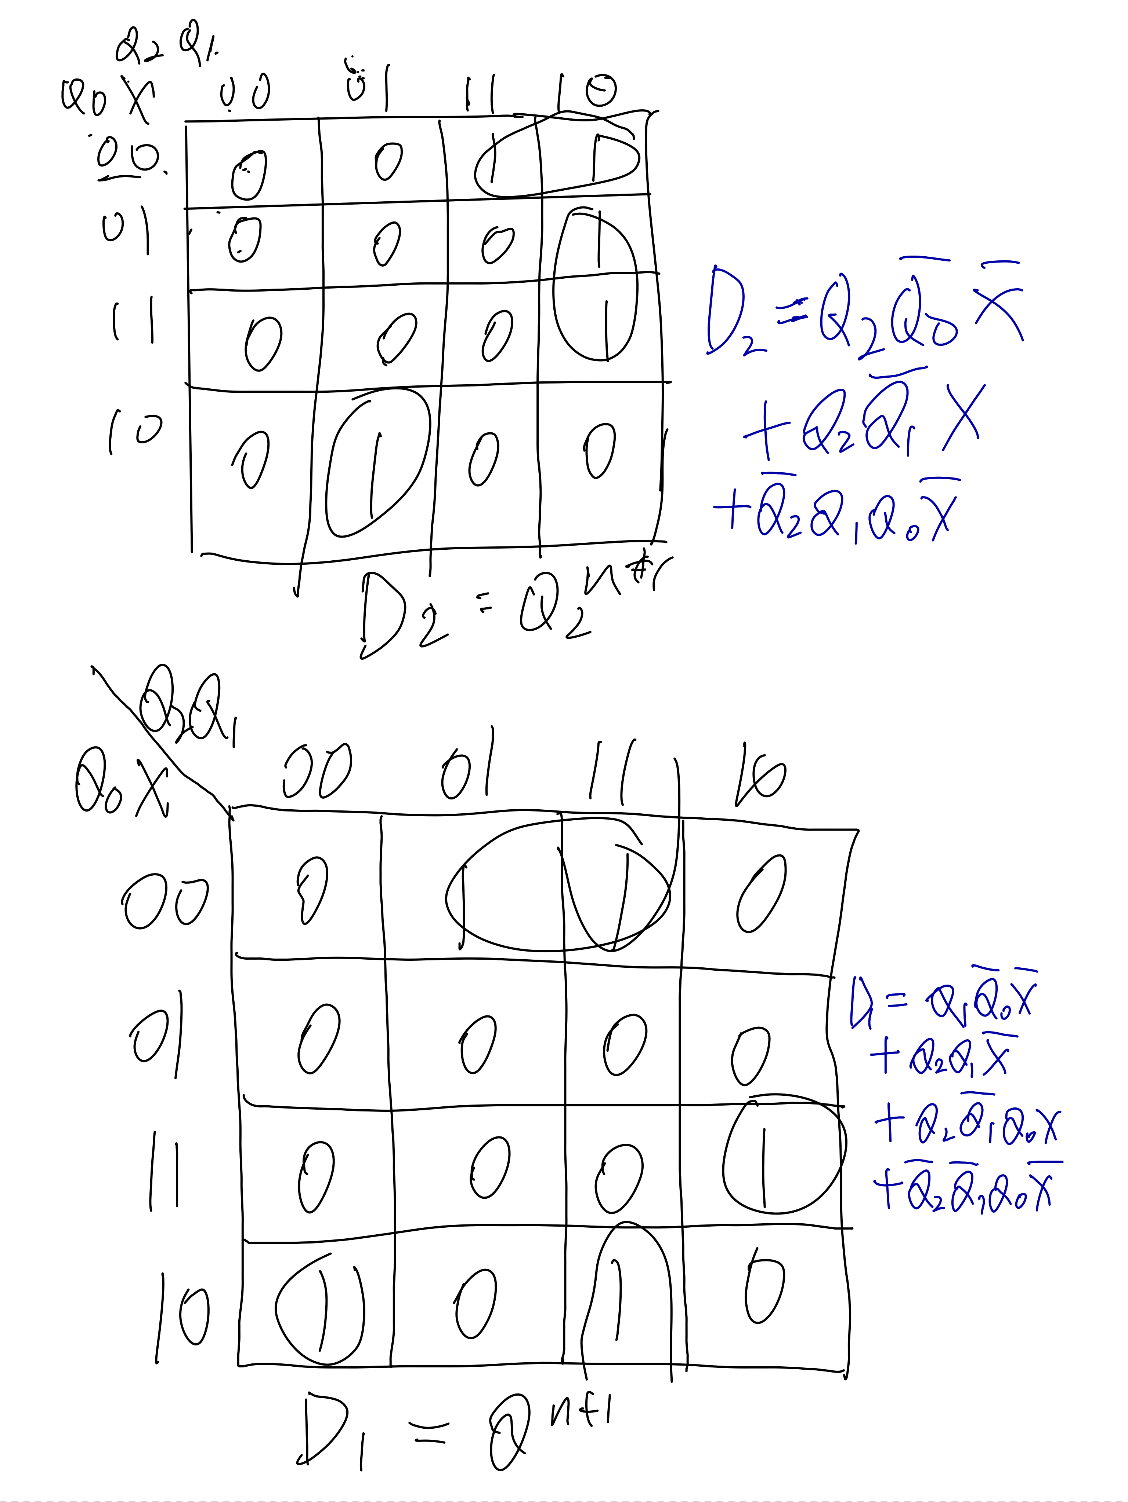 Q₂ Q₁
Q₀ X 00 01 11 10
00 0 0 1 1
01 0 0 0 1
11 0 0 0 1
10 0 1 0 0
D₂ = Q₂Q̅₀X̅
+ Q₂Q̅₁X
+ Q̅₂Q₁Q₀X̅
D₂ = Q₂ⁿ⁺¹
Q₂Q₁
Q₀ X 00 01 11 10
00 0 1 1 0
01 0 0 0 0
11 0 0 0 1
10 1 0 1 0
D₁ = Q₁Q̅₀X̅
+ Q₂Q₁X̅
+ Q₂Q̅₁Q₀X
+ Q̅₂Q̅₁Q₀X̅
D₁ = Qⁿ⁺¹